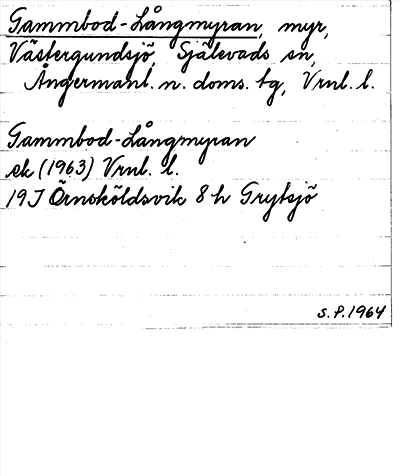 Gammbod-Långmyran, myr,
Västergundsjö, Själevads sn,
Ångermanl. n. doms. tg, Vrnl. l.
Gammbod-Långmyran
ek (1963) Vrnl. l.
19J Örnsköldsvik 8 h Grytsjö
S.P. 1964